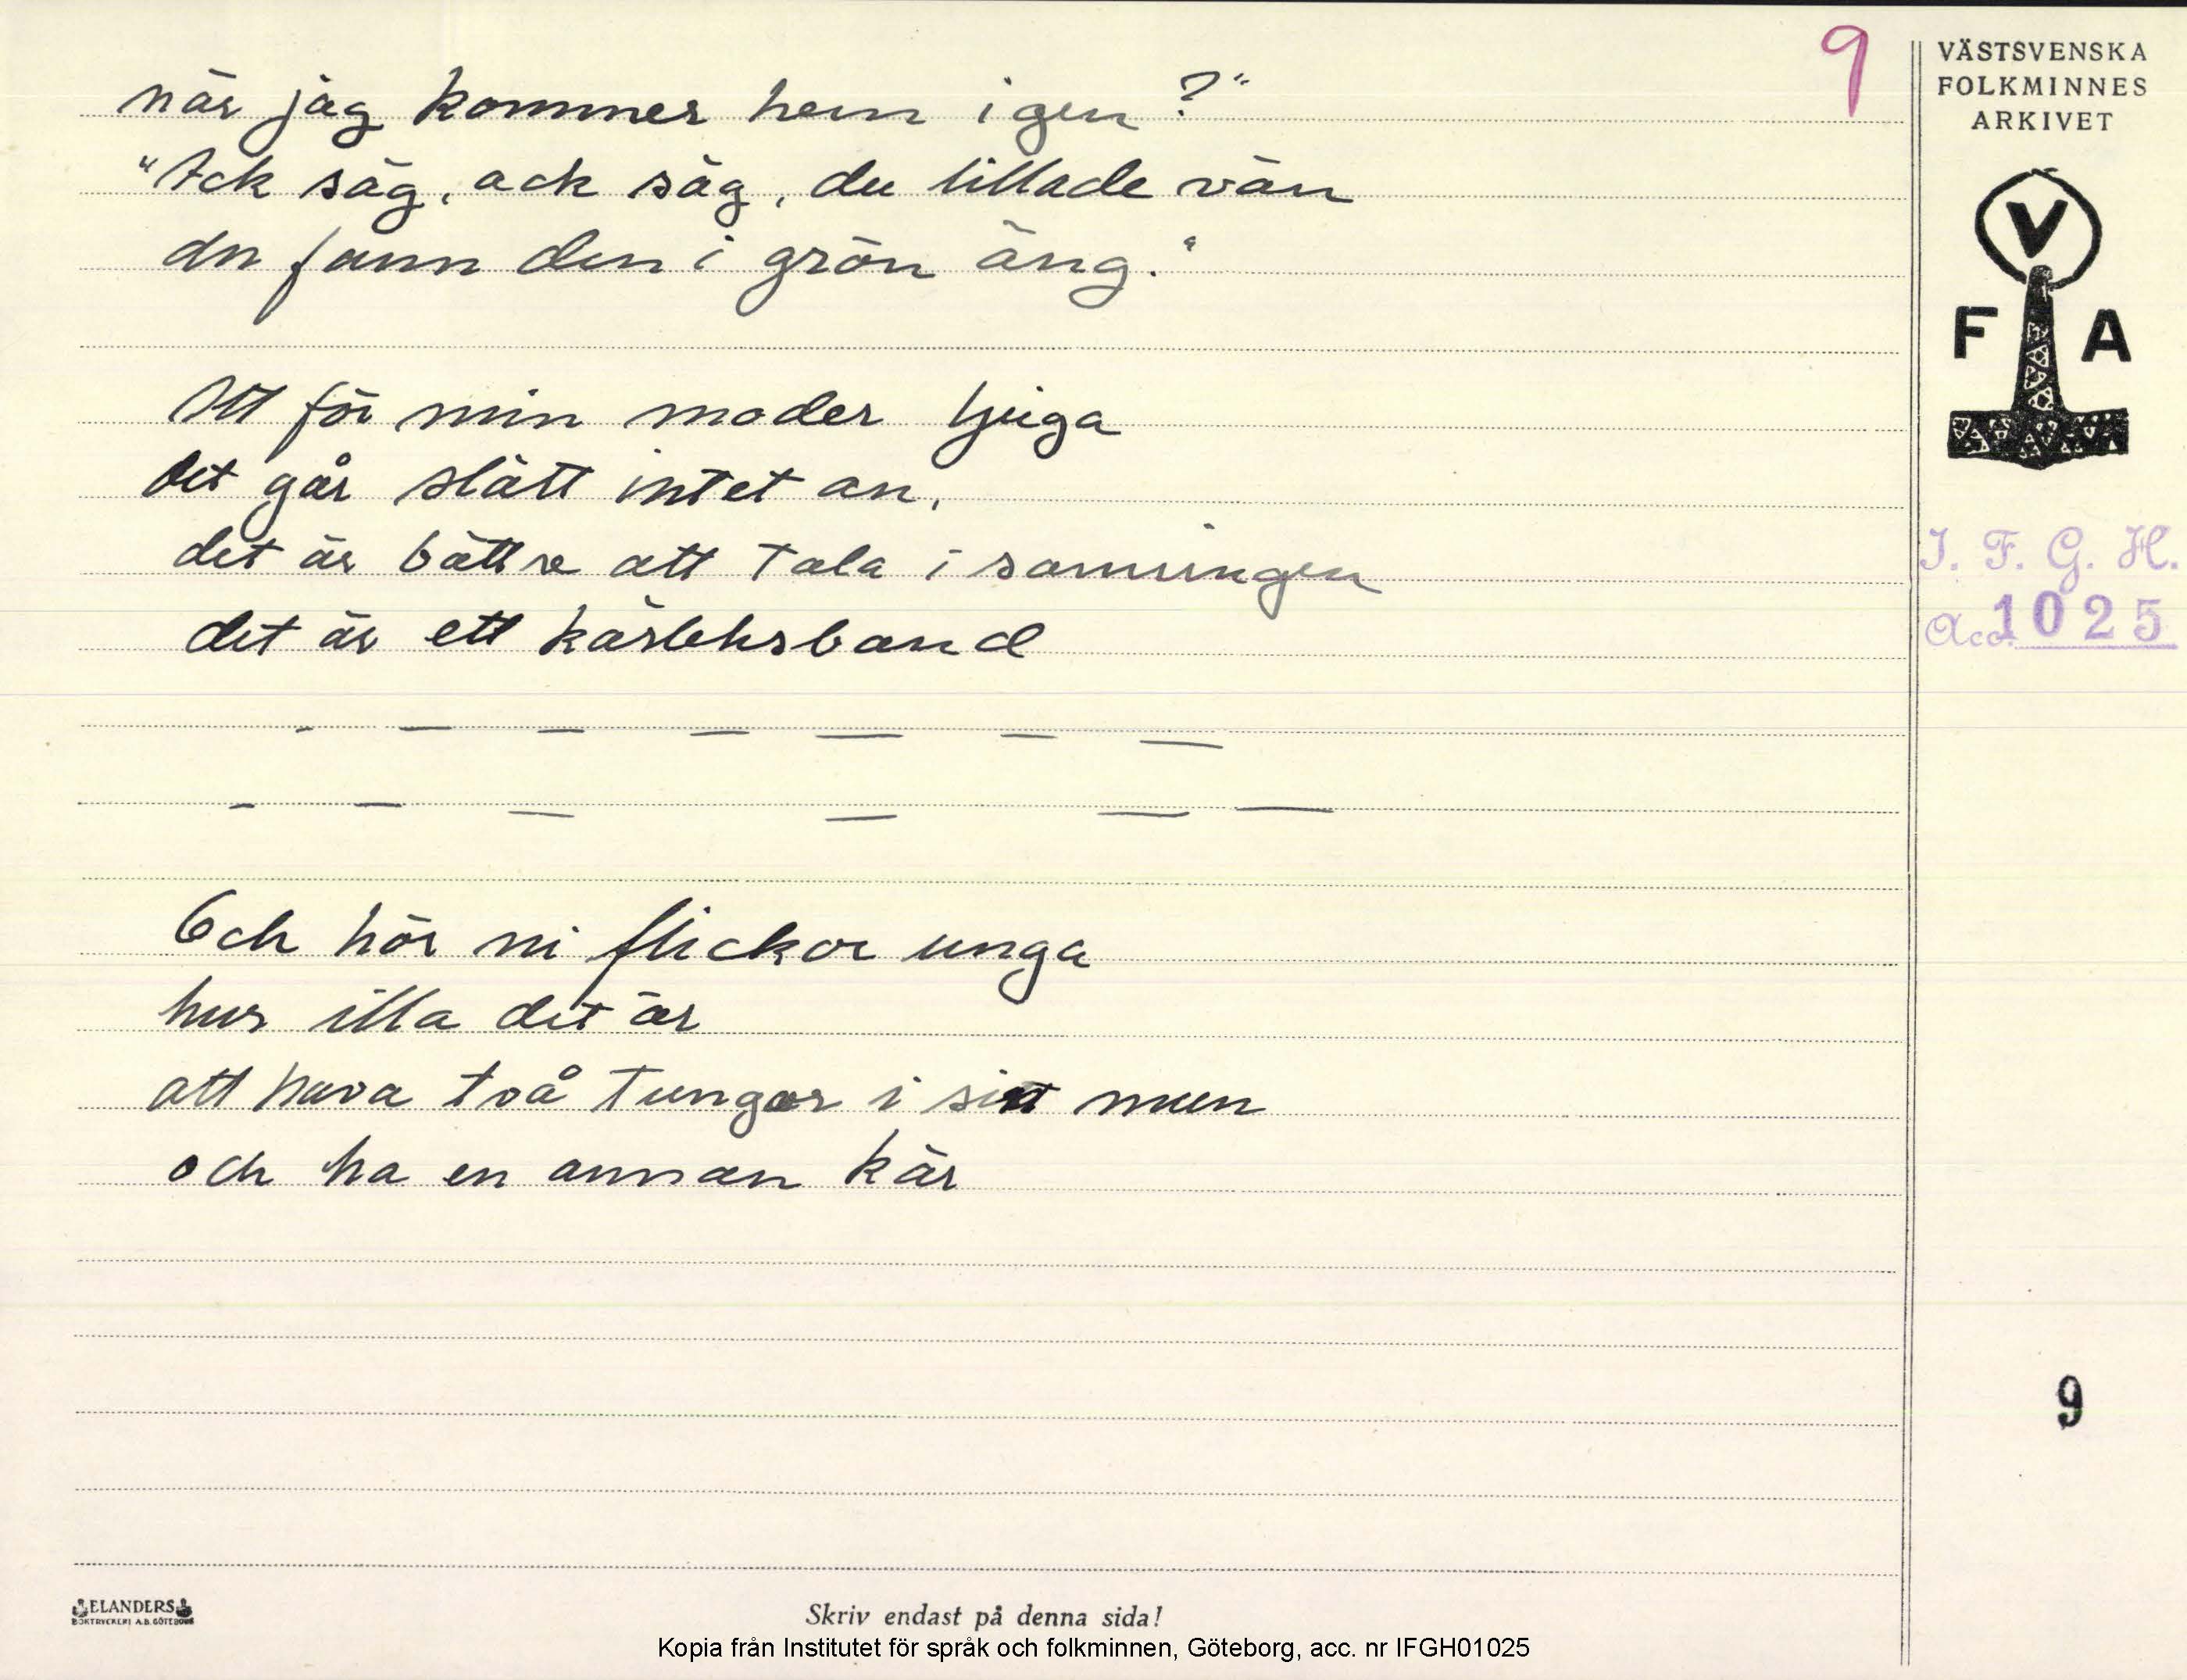 9
när jag kommer hem igen?"
"Ack säg, ack säg, du lillade vän
du fann den i grön äng."
Att för min moder ljuga
det går slätt intet an,
det är bättre att tala i sanningen
det är ett kärleksband
- — — — — — —
- — — — — —
Och hör ni flickor unga
hur illa det är
att hava två tungor i sin mun
och ha en annan kär
VÄSTSVENSKA
FOLKMINNES
ARKIVET
V
F A
I. F. G. H.
Acc. 1025
9
ELANDERS
BOKTRYCKERI A.B. GÖTEBORG
Skriv endast på denna sida!
Kopia från Institutet för språk och folkminnen, Göteborg, acc. nr IFGH01025